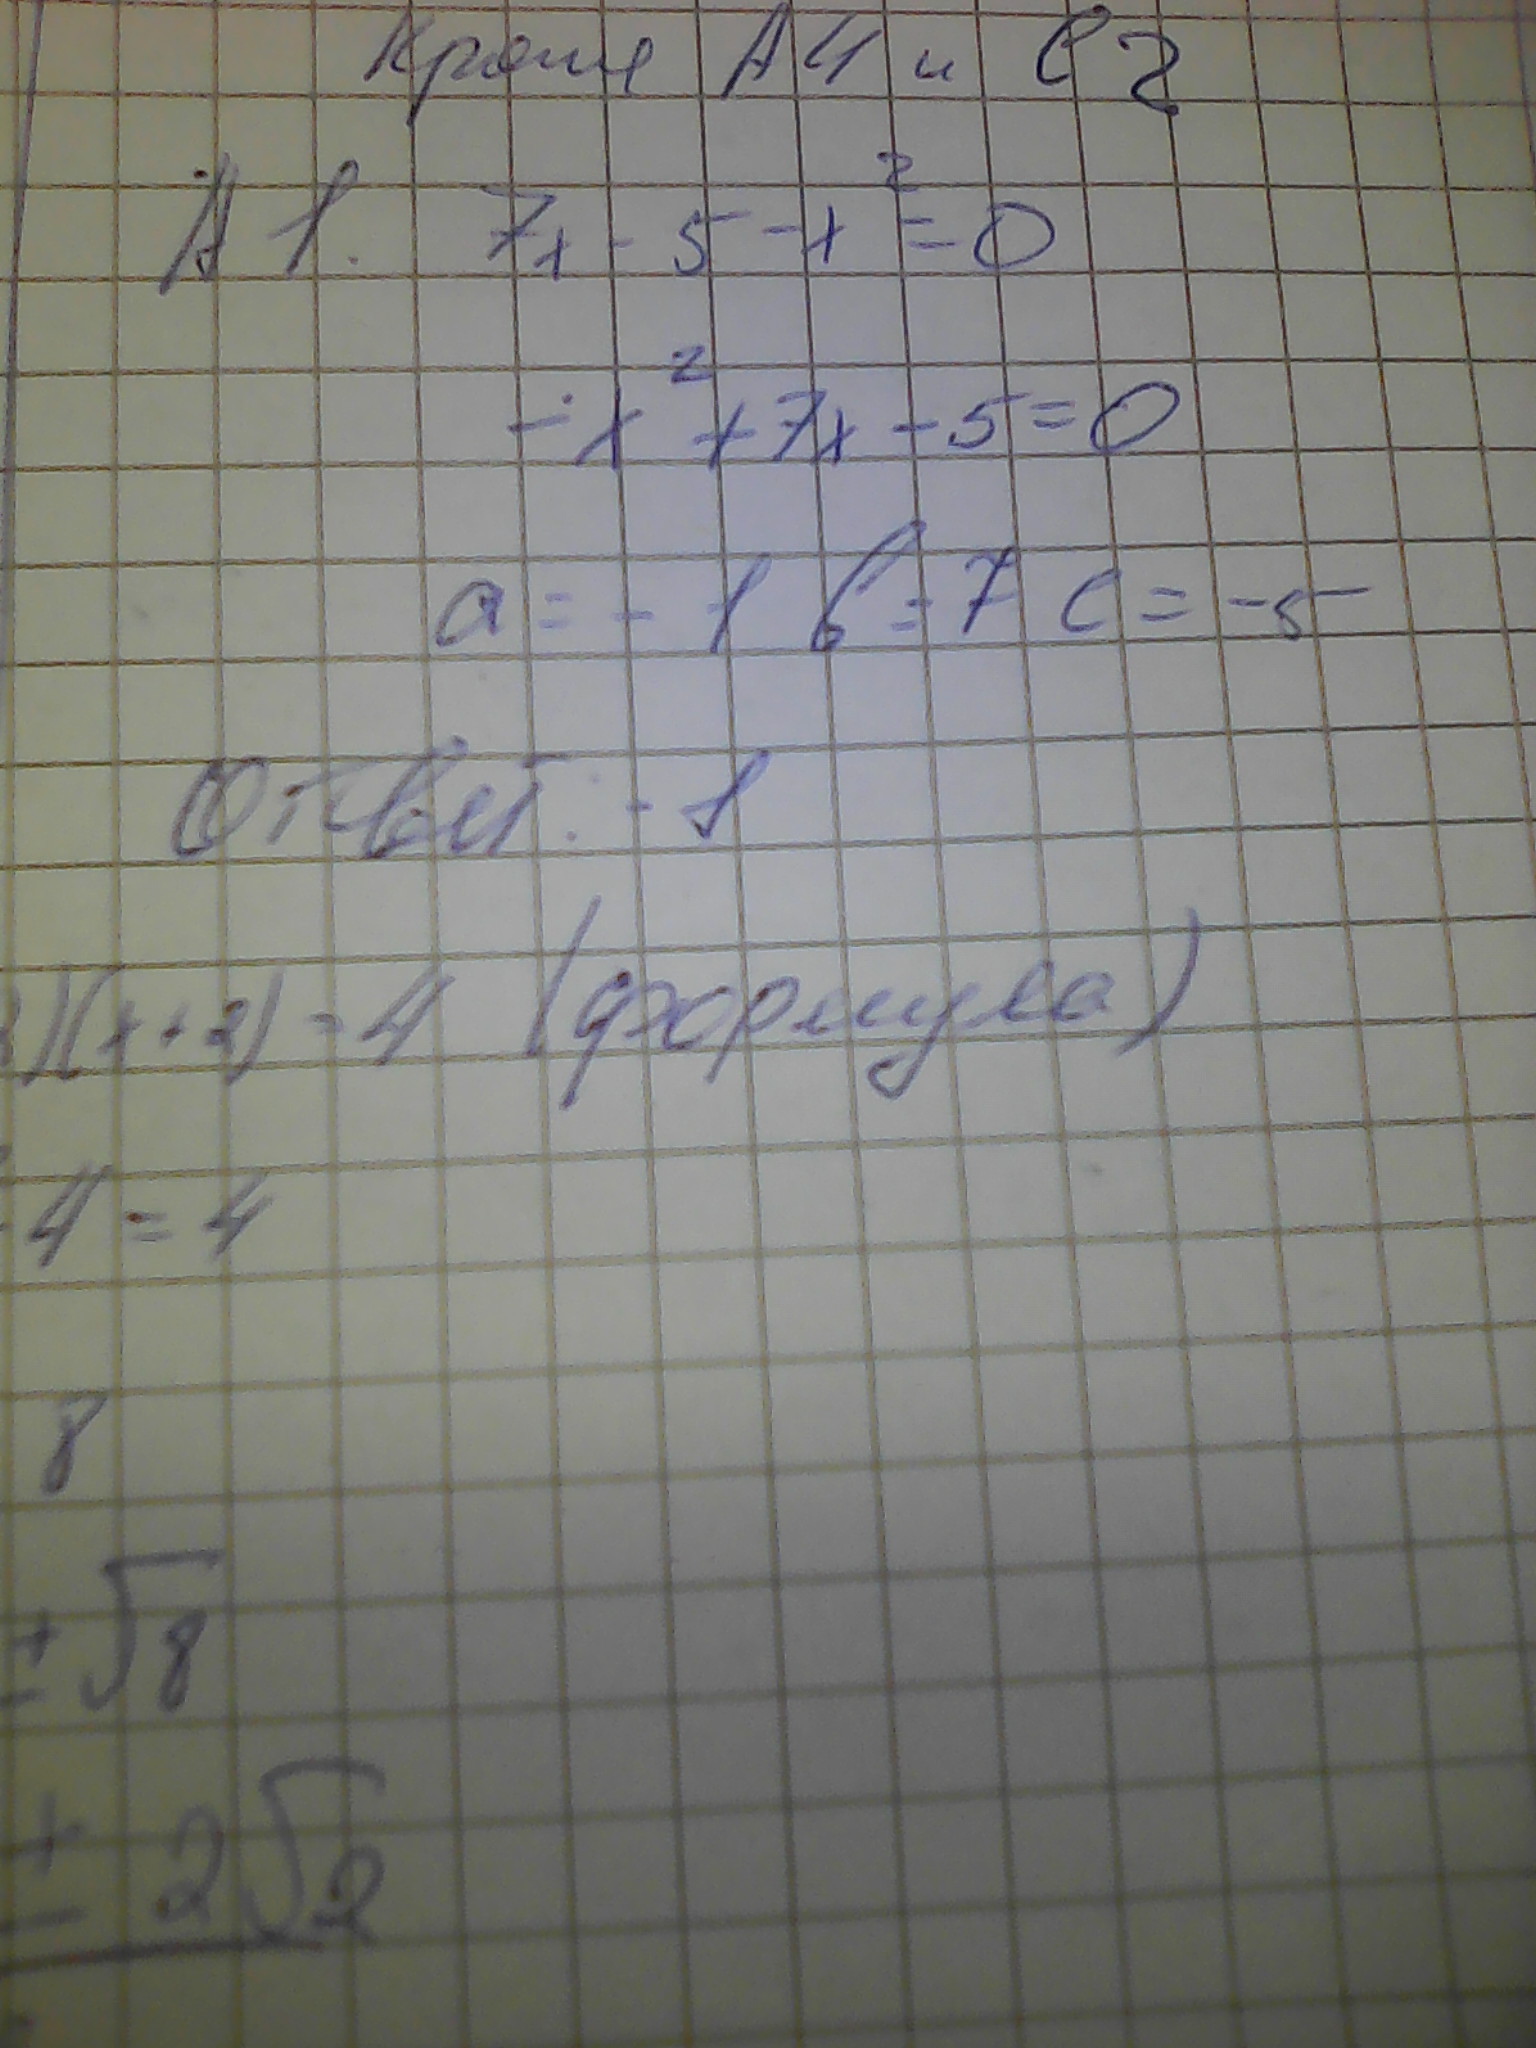 Кроме А4 и С2
А 1. 7x - 5 - x² = 0
-x² + 7x - 5 = 0
a = -1 b = 7 c = -5
Ответ: -1
)(x+2) = 4 (формула)
4 = 4
8
±√8
± 2√2